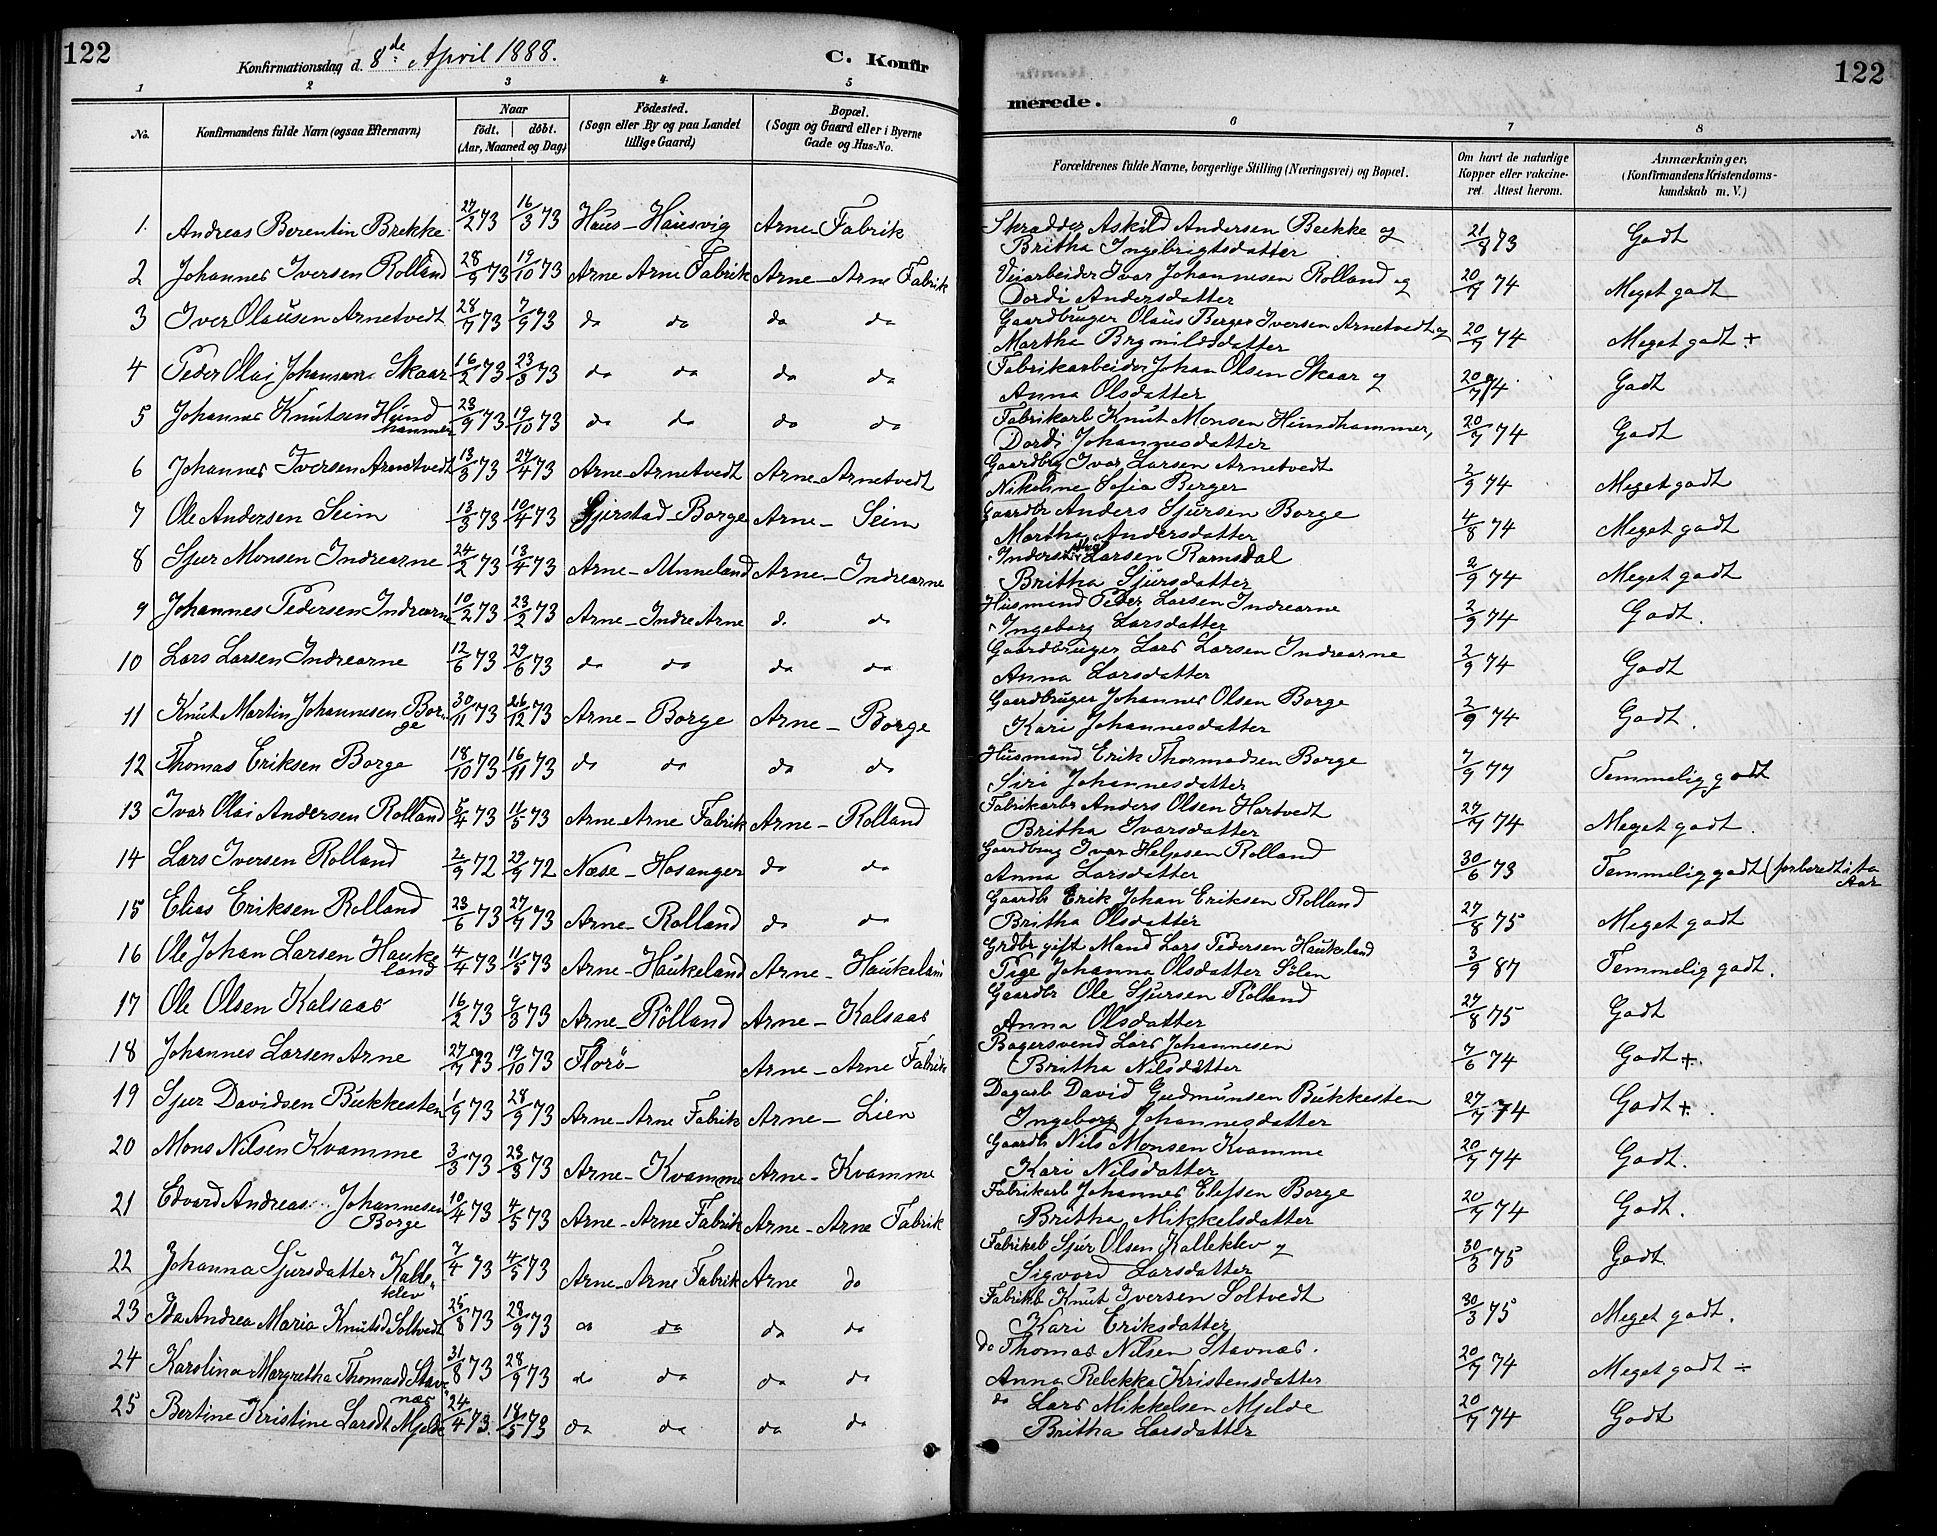 122
Konfirmationsdag d. 8de April 1888.
C. Konfir
merede.
122
1 2 3 4 5 6 7 8
No.
Konfirmandens fulde Navn (ogsaa Efternavn)
Naar
födt. | döbt.
(Aar, Maaned og Dag)
Födested.
(Sogn eller By og paa Landet
tillige Gaard)
Bopæl.
(Sogn og Gaard eller i Byerne
Gade og Hus-No.
Forældrenes fulde Navne, borgerlige Stilling (Næringsvei) og Bopæl.
Om havt de naturlige
Kopper eller vakcine-
ret. Attest herom.
Anmærkninger.
(Konfirmandens Kristendoms-
kundskab m. V.)
1. Andreas Berentin Brekke 27/2 73 16/3 73 Haus - Hausvig Arne - Fabrik Skrædder Askild Andersen Brekke og
Britha Ingebrigtsdatter 21/8 73 Godt
2 Johannes Iversen Rolland 28/9 73 19/10 73 Arne Arne Fabrik Arne - Arne Fabrik Veiarbeider Ivar Johannesen Rolland og
Dordi Andersdatter 20/7 74 Meget godt
3 Iver Olausen Arnetvedt 28/7 73 7/9 73 do do do do Gaardbruger Olaus Berger Iversen Arnetvedt og
Martha Brynildsdatter 20/7 74 Meget godt +
4 Peder Olai Johansen Skaar 16/2 73 23/3 73 do do do do Fabrikarbeider Johan Olsen Skaar og
Anna Olsdatter 20/7 74. Godt
5 Johannes Knutsen Hund
hammer 23/9 73 19/10 73 do do do do Fabrikarb Knut Monsen Hundhammer,
Dordi Johannesdatter 20/7 74 Godt
6 Johannes Iversen Arnetvedt 13/3 73 27/4 73 Arne - Arnetvedt Arne - Arnetvedt Gaardbrg Ivar Larsen Arnetvedt
Nikoline Sofia Berger 2/9 74 Meget godt
7 Ole Andersen Seim 13/3 73 10/4 73 Gjerstad - Borge Arne - Seim Gaardbr Anders Sjursen Borge
Martha Andersdatter 4/8 74 Meget godt
8 Sjur Monsen Indrearne 24/2 73 13/4 73 Arne - Unneland Arne - Indrearne Inderst Larsen Ramsdal
Britha Sjursdatter 2/9 74 Meget godt
9 Johannes Pedersen Indrearne 10/2 73 23/2 73 Arne - Indre Arne d. do Husmand Peder Larsen Indrearne
Ingeborg Larsdatter 2/9 74 Godt.
10 Lars Larsen Indrearne 12/6 73 29/6 73 do do do do Gaardbruger Lars Larsen Indrearne
Anna Larsdatter 2/9 74 Godt
11 Knut Martin Johannesen Bor
ge 30/11 73 26/12 73 Arne - Borge Arne - Borge Gaardbruger Johannes Olsen Borge
Kari Johannesdatter 2/9 74 Godt.
12 Thomas Eriksen Borge 18/10 73 16/11 73 do do do do Husmand Erik Thormodsen Borge
Siri Johannesdatter 7/9 77 Temmelig godt
13 Ivar Olai Andersen Rolland 5/4 73 11/5 73 Arne - Arne Fabrik Arne - Rolland Fabrikarbr Anders Olsen Hartvedt
Britha Ivarsdatter 27/7 74 Meget godt.
14 Lars Iversen Rolland 2/9 72 29/9 72 Næse - Hosanger do do Gaardbrug Ivar Helgesen Rolland
Anna Larsdatter 30/6 73 Temmelig godt (forberedt i to
Aar
15 Elias Eriksen Rolland 23/6 73 27/7 73 Arne - Rolland do do Gaardbr Erik Johan Eriksen Rolland
Britha Olsdatter 27/8 75 Meget godt
16 Ole Johan Larsen Hauke
land 4/4 73 11/5 73 Arne - Haukeland Arne - Haukeland Grdbr gift Mand Lars Pedersen Haukeland
Pige Johanna Olsdatter Sølen 3/9 87 Temmelig godt.
17 Ole Olsen Kalsaas 16/2 73 9/3 73 Arne - Rölland Arne - Kalsaas Gaardbr Ole Sjursen Rölland
Anna Olsdatter 27/8 75 Godt
18 Johannes Larsen Arne 27/7 73 19/10 73 Florö - Arne - Arne Fabrik Bagersvend Lars Johannesen
Britha Nilsdatter 7/6 74 Godt +
19 Sjur Davidsen Bukkesten 1/9 73 28/9 73 Arne - Arne Fabrik Arne - Lien Dagarb David Gudmunsen Bukkesten
Ingeborg Johannesdatter 27/7 74 Godt +.
20 Mons Nilsen Kvamme 3/3 73 23/3 73 Arne - Kvamme Arne - Kvamme Gaardbr Nils Monsen Kvamme
Kari Nilsdatter 20/7 74 Godt.
21 Edvard Andreas Johannesen
Borge 10/4 73 4/5 73 Arne - Arne Fabrik Arne - Arne Fabrik Fabrikarb Johannes Elefsen Borge
Britha Mikkelsdatter 20/7 74 Godt.
22 Johanna Sjursdatter Kalle
klev 7/4 73 4/5 73 Arne - Arne Fabrik Arne do Fabrikab Sjur Olsen Kalleklev og
Sigvord Larsdatter 30/3 75 Godt.
23 Ida Andrea Maria Knutsd Soltvedt 25/8 73 28/9 73 do do do do Fabrikb Knut Iversen Soltvedt
Kari Eriksdatter 30/3 75 Meget godt.
24 Karolina Margretha Thomasd Stav
nas 31/8 73 28/9 73 do do do do do Thomas Nilsen Stavnas.
Anna Rebekka Kristensdatter 20/7 74 Meget godt ÷
25 Bertine Kristine Larsdt Mjelde 24/4 73. 18/5 73 do do do do do Lars Mikkelsen Mjelde
Britha Larsdatter 20/7 74 Godt